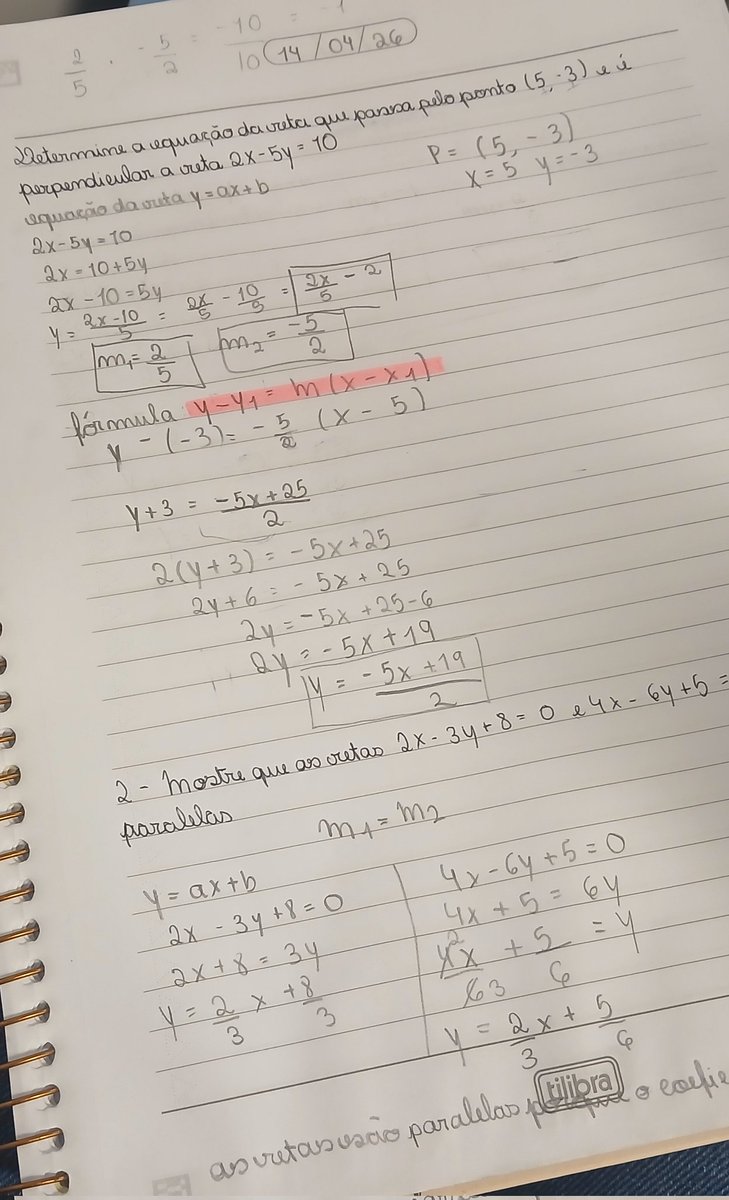 2/5 · -5/2 = -10/10 = -1
14/04/26
Determine a equação da reta que passa pelo ponto (5,-3) e é
perpendicular a reta 2x-5y=10
P = (5, -3)
x=5 y=-3
equação da reta y=ax+b
2x-5y=10
2x=10+5y
2x-10=5y
y= 2x-10/5 = 2x/5 - 10/5 = 2x/5 - 2
m1= 2/5 m2= -5/2
fórmula y-y1= m(x-x1)
y-(-3)= -5/2 (x - 5)
y+3 = -5x+25/2
2(y+3) = -5x+25
2y+6 = -5x+25
2y=-5x+25-6
2y=-5x+19
y = -5x+19/2
2- Mostre que as retas 2x-3y+8=0 e 4x-6y+5=
paralelas
m1=m2
y=ax+b
2x-3y+8=0
2x+8=3y
y=2/3 x +8/3
4x-6y+5=0
4x+5=6y
4 2x/6 3 + 5/6 = y
y = 2/3 x + 5/6
tilibra
as retas são paralelas porque o coefie